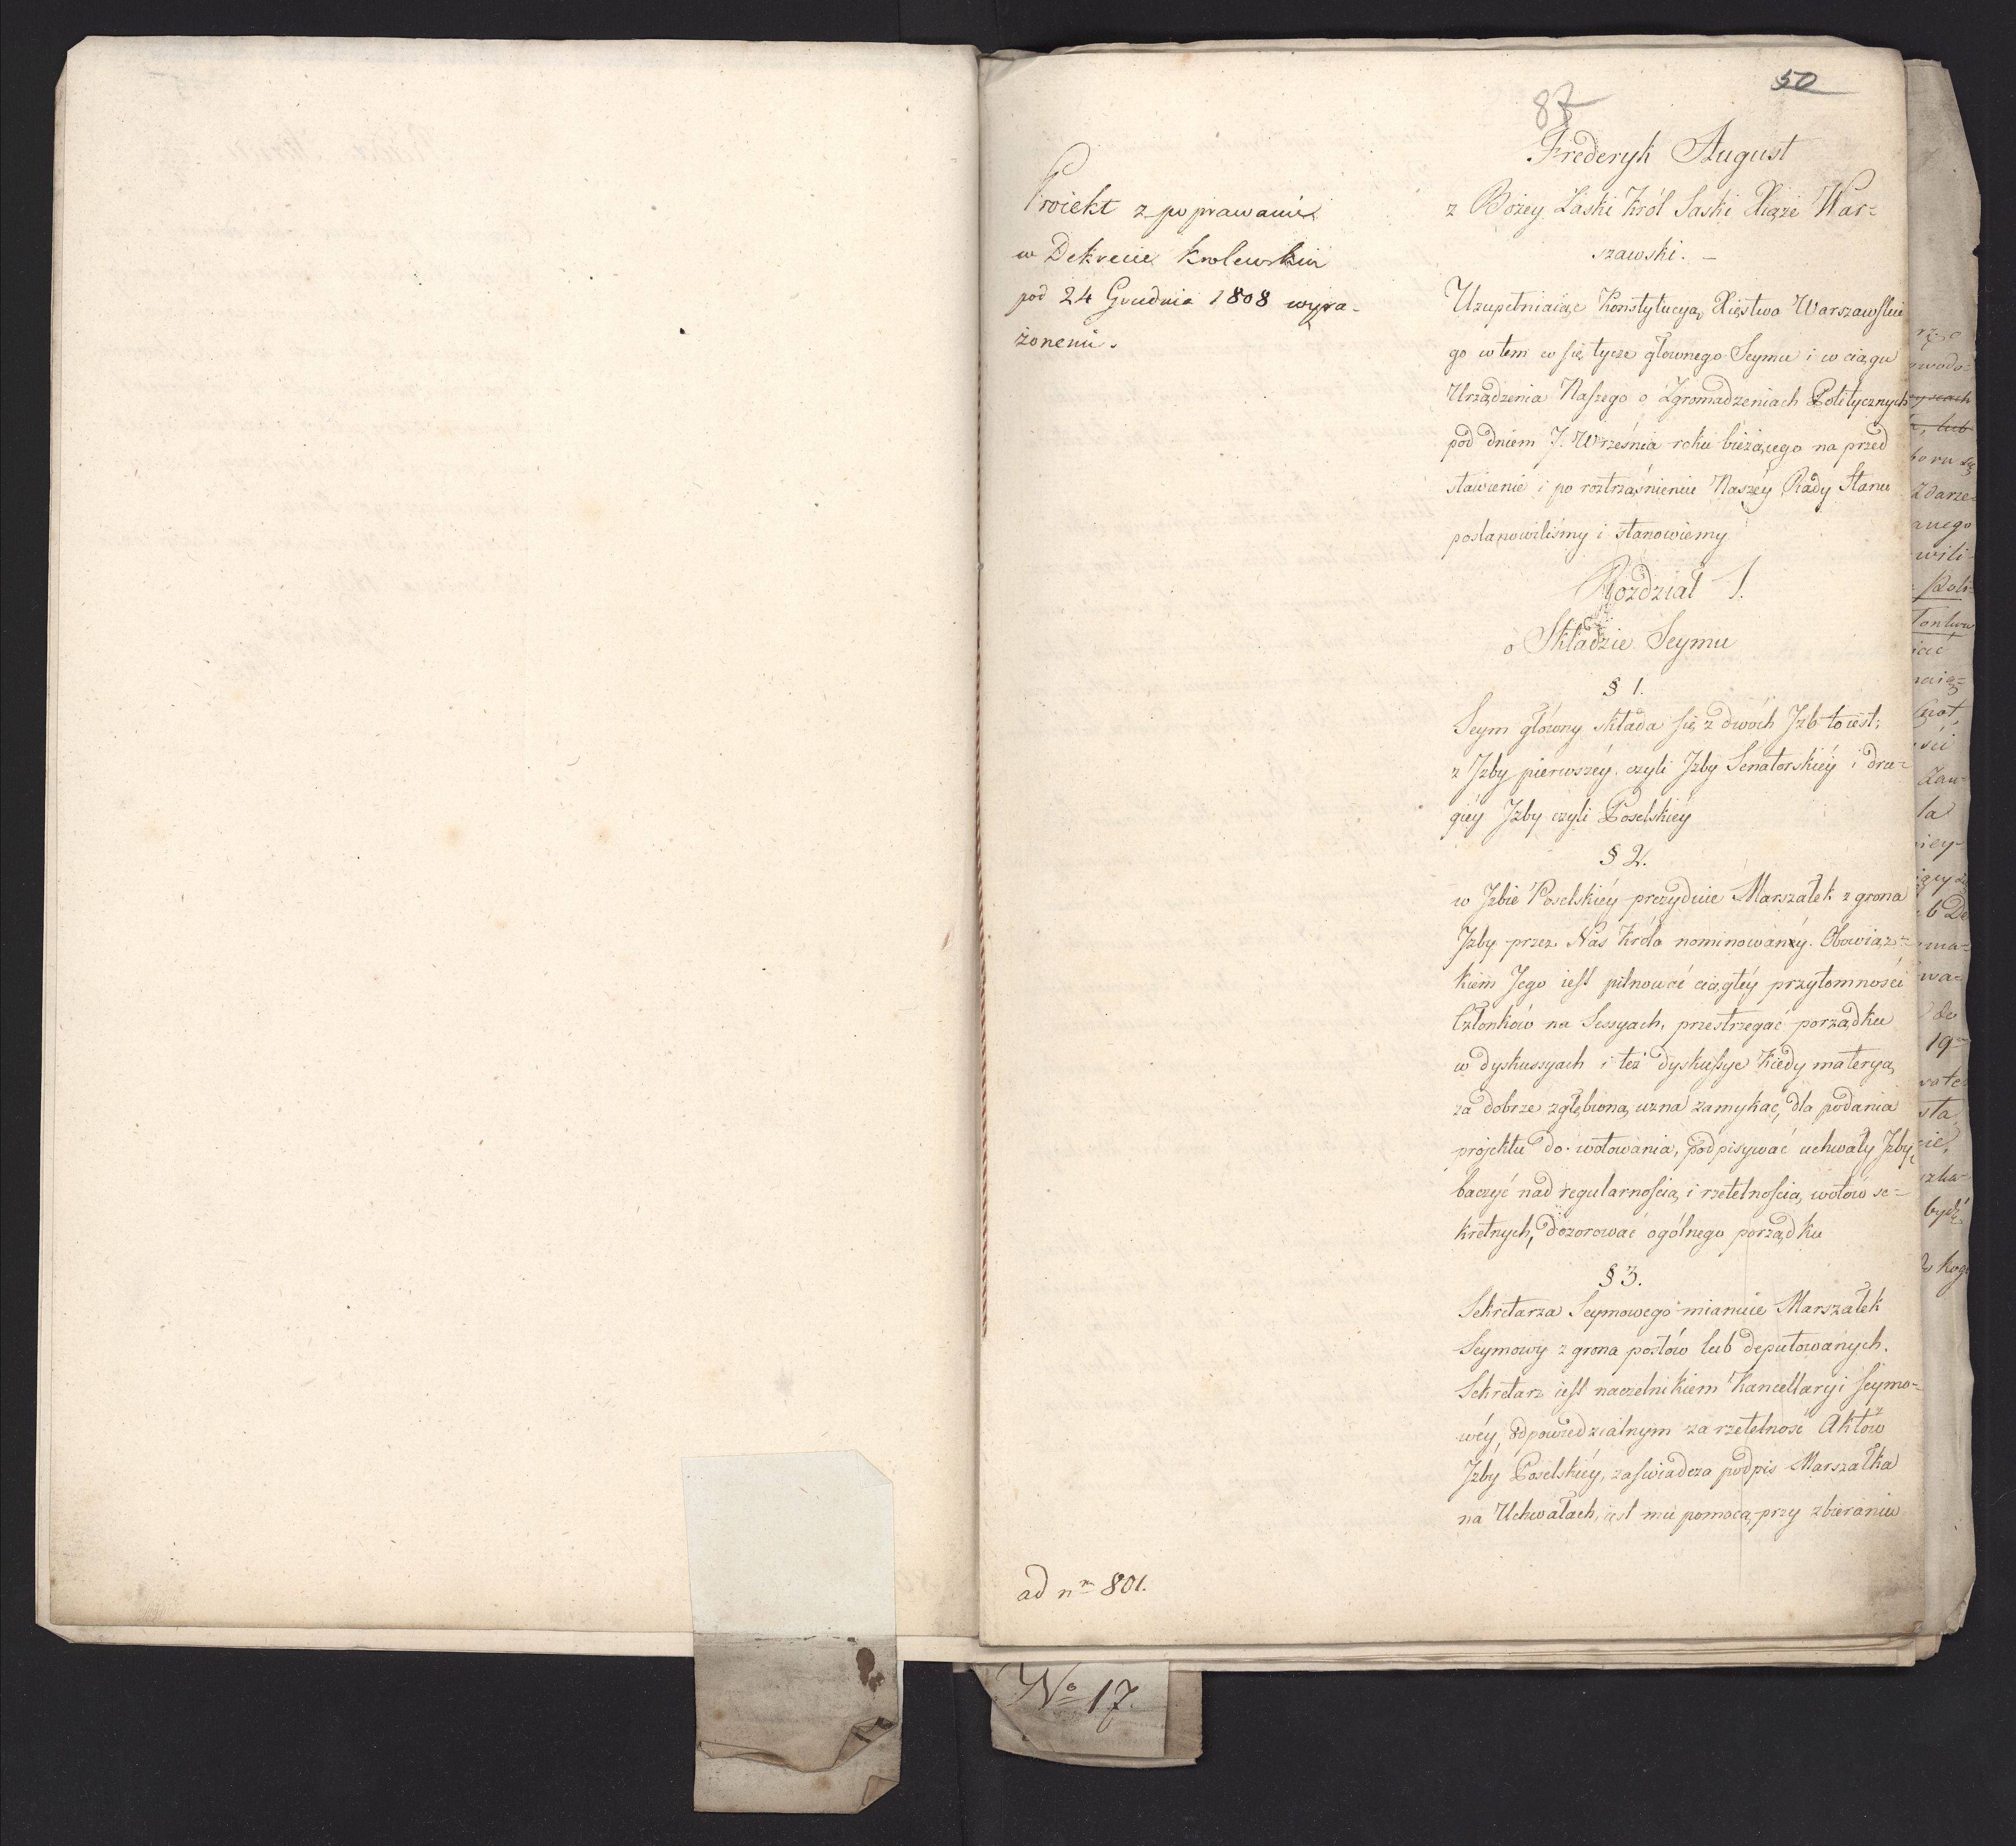 50
87
Proiekt z poprawami
w Dekrecie Krolewskim
pod 24 Grudnia 1808 wyra-
żonemi.
Frederyk August
z Bożey Łaski Król Saski Xiąże War=
szawski. —
Uzupełniaiąc Konstytucyą Xięstwa Warszawskie
go w tem co się tycze głownego Seymu i w ciągu
Urządzenia Naszego o Zgromadzeniach Politycznych
pod dniem 7. Września roku bieżącego na przed
stawienie i po roztrząśnieniu Naszéy Rady Stanu
postanowiliśmy i stanowiemy
Rozdział 1.
o Składzie Seymu
§ 1.
Seym główny składa się z dwóch Jzb to iest;
z Jzby pierwszéy czyli Jzby Senatorskiéy i dru=
giéy Jzby czyli Poselskiéy
§ 2.
w Jzbie Poselskiéy prezyduie Marszałek z grona
Jzby przez Nas Króla nominowany. Obowiąz=
kiem Jego iest pilnować ciągłéy przytomności
Członków na Sessyach, przestrzegać porządku
w dyskussyach i też dyskussye kiedy materyą
za dobrze zgłębioną uzna zamykać, dla podania
projektu do wotowania, podpisywać uchwały Jzby,
baczyć nad regularnością i rzetelnością wotów se=
kretnych, dozorować ogólnego porządku
§ 3.
Sekretarza Seymowego mianuie Marszałek
Seymowy z grona posłów lub deputowanych.
Sekretarz iest naczelnikiem Kancellaryi Seymo=
wéy, odpowiedzialnym za rzetelność Aktów
Jzby Poselskiéy, zaświadcza podpis Marszałka
na Uchwałach, iest mu pomocą przy zbieraniu
ad nm 801.
No 17.